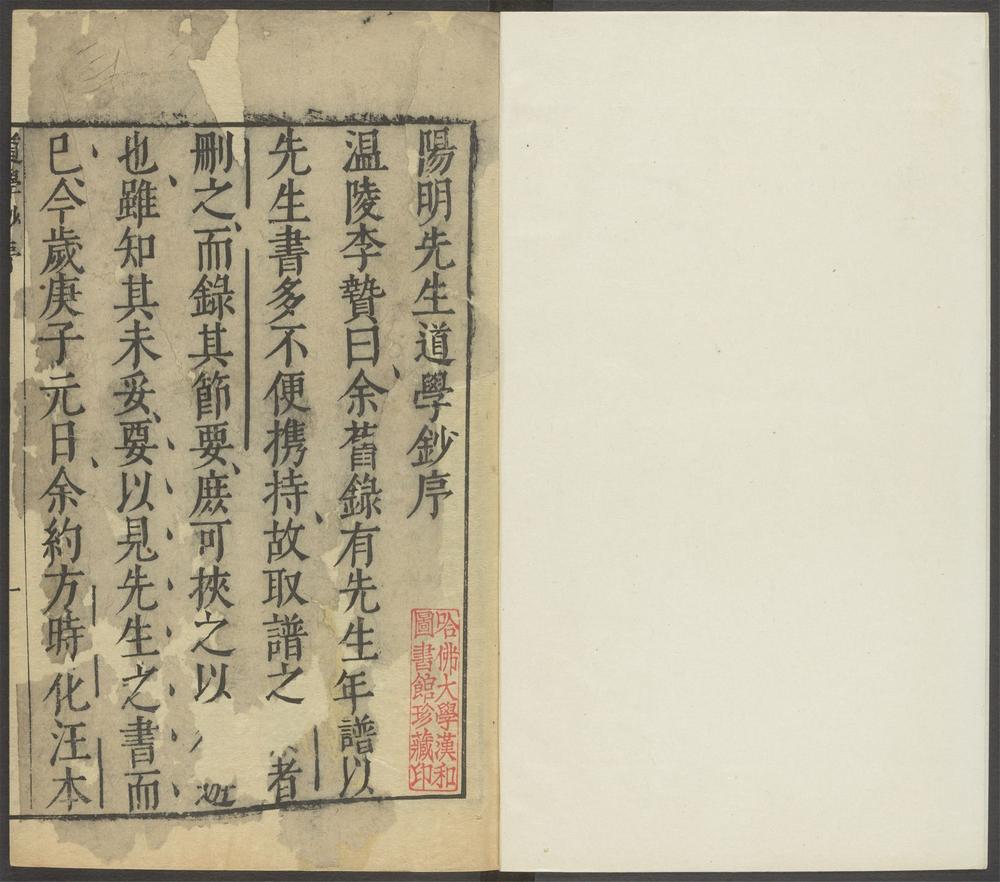 陽明先生道學鈔序
溫陵李贄曰余舊錄有先生年譜以
先生書多不便携持故取譜之者
刪之而錄其節要庶可挾之以
也雖知其未妥要以見先生之書而
巳今歲庚子元日余約方時化汪本
哈佛大學漢和
圖書館珍藏印
道學鈔序
一